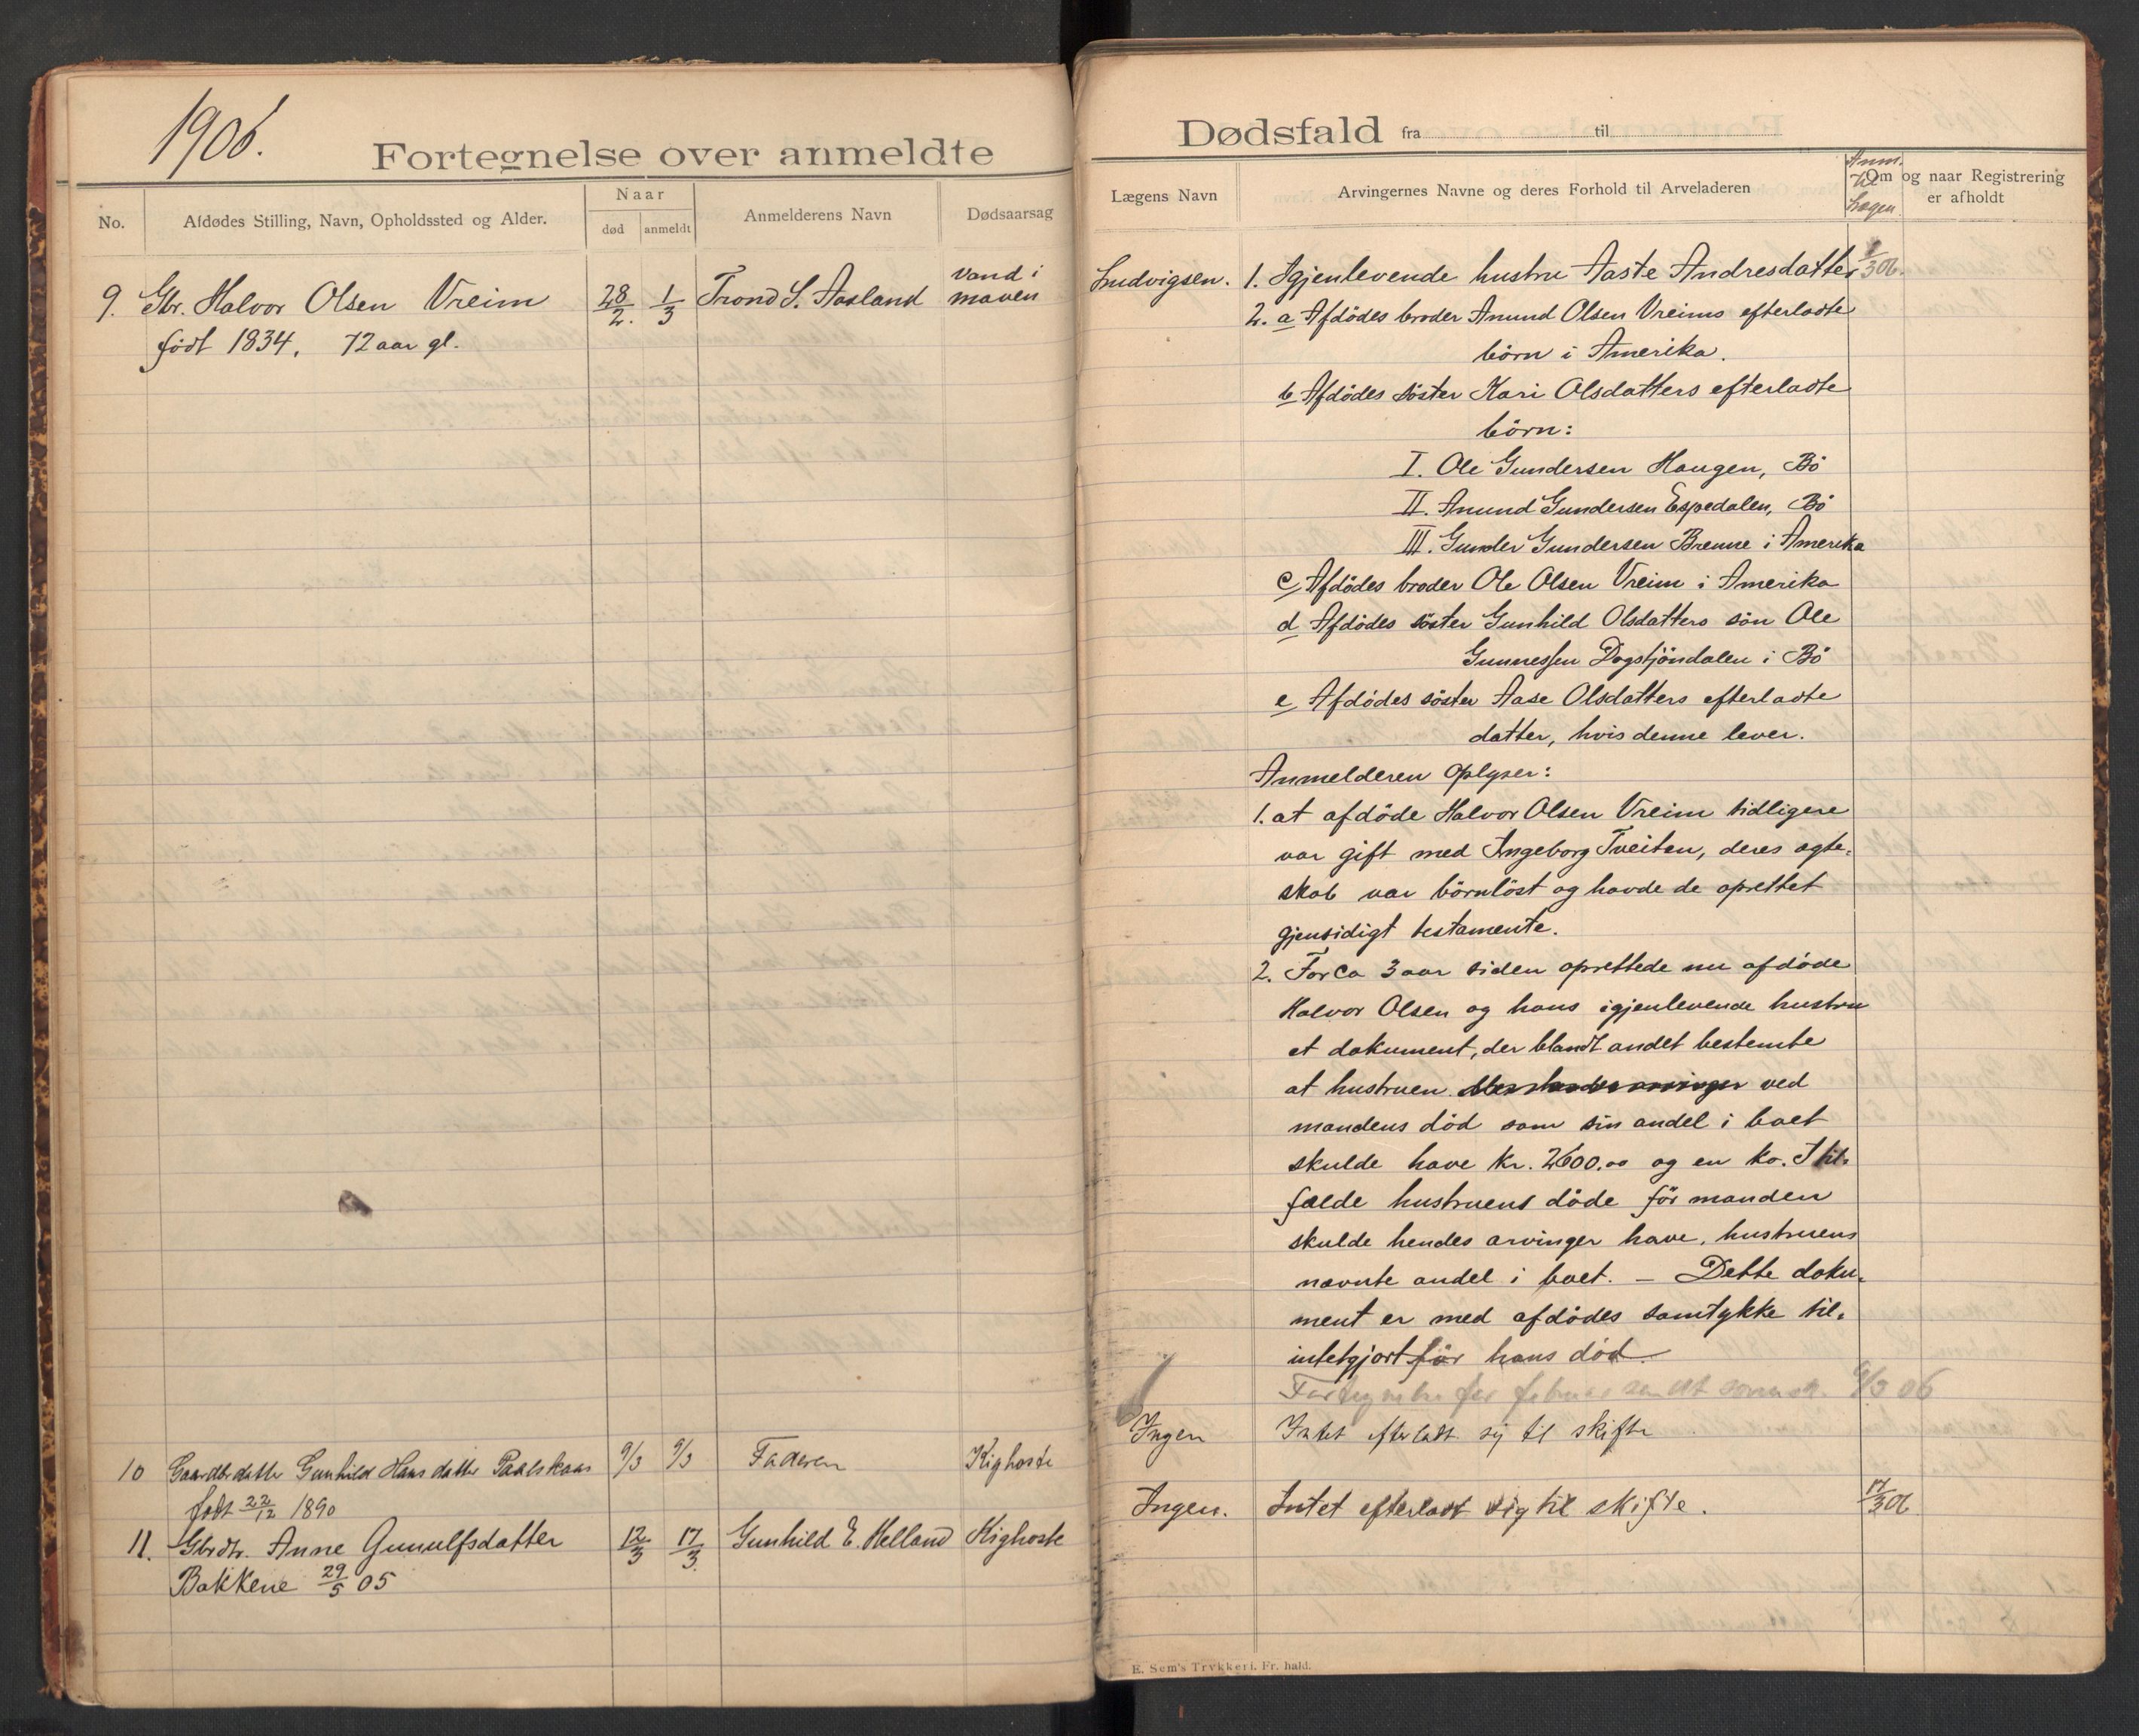 1906.
Fortegnelse over anmeldte
No.
Afdødes Stilling, Navn, Opholdssted og Alder.
Naar
død
anmeldt
Anmelderens Navn
Dødsaarsag
9. Gbr. Halvor Olsen Vreim 28/2. 1/3 Trond S. Aasland vand i
maven
født 1834. 72 aar gl.
10 Gaardbrdatter Gunhild Hansdatter Paalskaas 9/3 9/3 Faderen Kighoste
født 22/12 1890
11. Gbrdtr. Anne Gunulfsdatter 12/3 17/3. Gunhild E. Helland Kighoste
Bakkene 29/5 05
Dødsfald fra til
Lægens Navn
Arvingernes Navne og deres Forhold til Arveladeren
Anm.
til
Lægen.
Om og naar Registrering
er afholdt
Ludvigsen. 1. Igjenlevende hustru Aaste Andresdatter 1/3 06.
2. a Afdødes broder Anund Olsen Vreims efterladte
børn i Amerika.
b Afdødes søster Kari Olsdatters efterladte
børn:
I. Ole Gundersen Haugen, Bø
II. Anund Gundersen Espedalen, Bø
III. Gunder Gundersen Brenne i Amerika
c Afdødes broder Ole Olsen Vreim i Amerika
d Afdødes søster Gunhild Olsdatters søn Ole
Gunnessen Dagstjøndalen i Bø
e Afdødes søster Aase Olsdatters efterladte
datter, hvis denne lever.
Anmelderen oplyser:
1. at afdøde Halvor Olsen Vreim tidligere
var gift med Ingeborg Tveiten, deres ægte-
skab var børnløst og havde de oprettet
gjensidigt testamente.
2. For ca 3 aar siden oprettede nu afdøde
Halvor Olsen og hans igjenlevende hustru
et dokument, der blandt andet bestemte
at hustruen ved
mandens død som sin andel i boet
skulde have kr. 2600.00 og en ko. I til-
fælde hustruens døde før manden
skulde hendes arvinger have, hustruens
nævnte andel i boet. – Dette doku-
ment er med afdødes samtykke til-
intetgjort før hans død.
Fortegnelse for februar sendt 9/3 06
Ingen Intet efterladt sig til skifte
Ingen. Intet efterladt sig til skifte. 17/3 06
E. Sem's Trykkeri. Fr. hald.